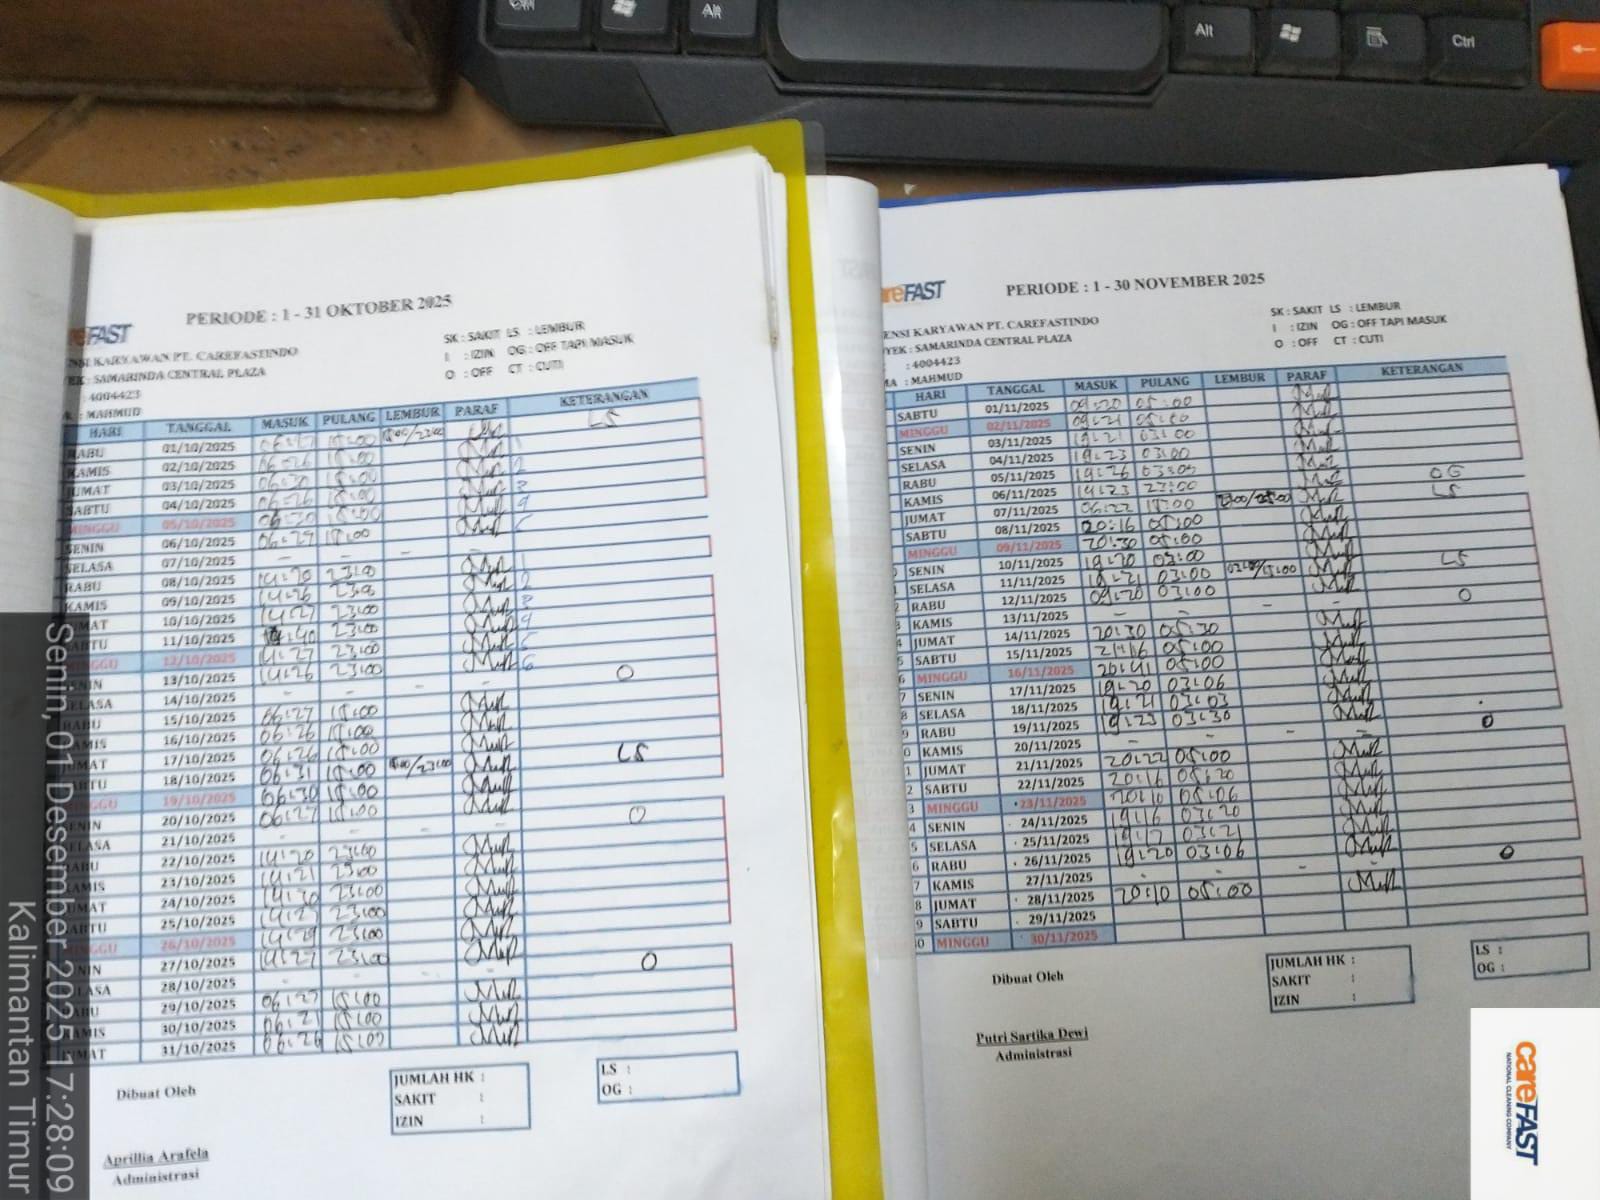 Alt
Alt
Ctrl
eFAST
PERIODE : 1 - 31 OKTOBER 2025
SK : SAKIT LS : LEMBUR
I : IZIN OG : OFF TAPI MASUK
O : OFF CT : CUTI
NSI KARYAWAN PT. CAREFASTINDO
EK : SAMARINDA CENTRAL PLAZA
: 4004423
: MAHMUD
HARI TANGGAL MASUK PULANG LEMBUR PARAF KETERANGAN
RABU 01/10/2025 LS
KAMIS 02/10/2025 06:26 15:00
JUMAT 03/10/2025 06:30 15:00
SABTU 04/10/2025 06:26 15:00
MINGGU 05/10/2025 06:30 15:00
SENIN 06/10/2025 06:27 15:00
SELASA 07/10/2025 - - - -
RABU 08/10/2025 14:20 23:00
KAMIS 09/10/2025 14:26 23:00
MAT 10/10/2025 14:27 23:00
ABTU 11/10/2025 23:00
INGGU 12/10/2025 14:27 23:00
NIN 13/10/2025 14:26 23:00
ELASA 14/10/2025 - - - - O
RABU 15/10/2025 06:27 15:00
AMIS 16/10/2025 06:26 15:00
MAT 17/10/2025 06:26 15:00
BTU 18/10/2025 06:31 15:00 LS
NGGU 19/10/2025 06:30 15:00
ENIN 20/10/2025 06:27 15:00
LASA 21/10/2025 - - - - O
ABU 22/10/2025 14:20 23:00
AMIS 23/10/2025 14:21 23:00
UMAT 24/10/2025 14:30 23:00
BTU 25/10/2025 14:27 23:00
INGGU 26/10/2025 14:29 23:00
NIN 27/10/2025 14:27 23:00
LASA 28/10/2025 - - - - O
ABU 29/10/2025 06:27 15:00
AMIS 30/10/2025 06:21 15:00
UMAT 31/10/2025 06:26 15:00
Dibuat Oleh
JUMLAH HK :
SAKIT :
IZIN :
LS :
OG :
Aprillia Arafela
Administrasi
reFAST
PERIODE : 1 - 30 NOVEMBER 2025
SK : SAKIT LS : LEMBUR
I : IZIN OG : OFF TAPI MASUK
O : OFF CT : CUTI
ENSI KARYAWAN PT. CAREFASTINDO
YEK : SAMARINDA CENTRAL PLAZA
: 4004423
MA : MAHMUD
HARI TANGGAL MASUK PULANG LEMBUR PARAF KETERANGAN
SABTU 01/11/2025 09:20 05:00
MINGGU 02/11/2025 09:21 05:00
SENIN 03/11/2025 19:21 03:00
SELASA 04/11/2025 19:23 03:00
RABU 05/11/2025 19:26 03:05
KAMIS 06/11/2025 19:23 OG
JUMAT 07/11/2025 06:22 15:00 LS
SABTU 08/11/2025 20:16 05:00
MINGGU 09/11/2025 20:30 05:00
SENIN 10/11/2025 19:20 03:00
SELASA 11/11/2025 19:21 03:00 LS
RABU 12/11/2025 09:20 03:00
KAMIS 13/11/2025 - - - - O
JUMAT 14/11/2025 20:30 05:30
SABTU 15/11/2025 05:00
MINGGU 16/11/2025 20:41 05:00
SENIN 17/11/2025 19:20 03:06
SELASA 18/11/2025 19:21 03:03
RABU 19/11/2025 19:23 03:30
KAMIS 20/11/2025 - - - - O
JUMAT 21/11/2025 20:22 05:00
SABTU 22/11/2025 20:16 05:20
MINGGU 23/11/2025 20:10 05:06
SENIN 24/11/2025 19:16 03:20
SELASA 25/11/2025 19:17 03:21
RABU 26/11/2025 19:20 03:06
KAMIS 27/11/2025 - - - - O
JUMAT 28/11/2025 20:10 05:00
SABTU 29/11/2025
MINGGU 30/11/2025
Dibuat Oleh
JUMLAH HK :
SAKIT :
IZIN :
LS :
OG :
Putri Sartika Dewi
Administrasi
Senin, 01 Desember 2025 17:28:09
Kalimantan Timur
careFAST
NATIONAL CLEANING COMPANY